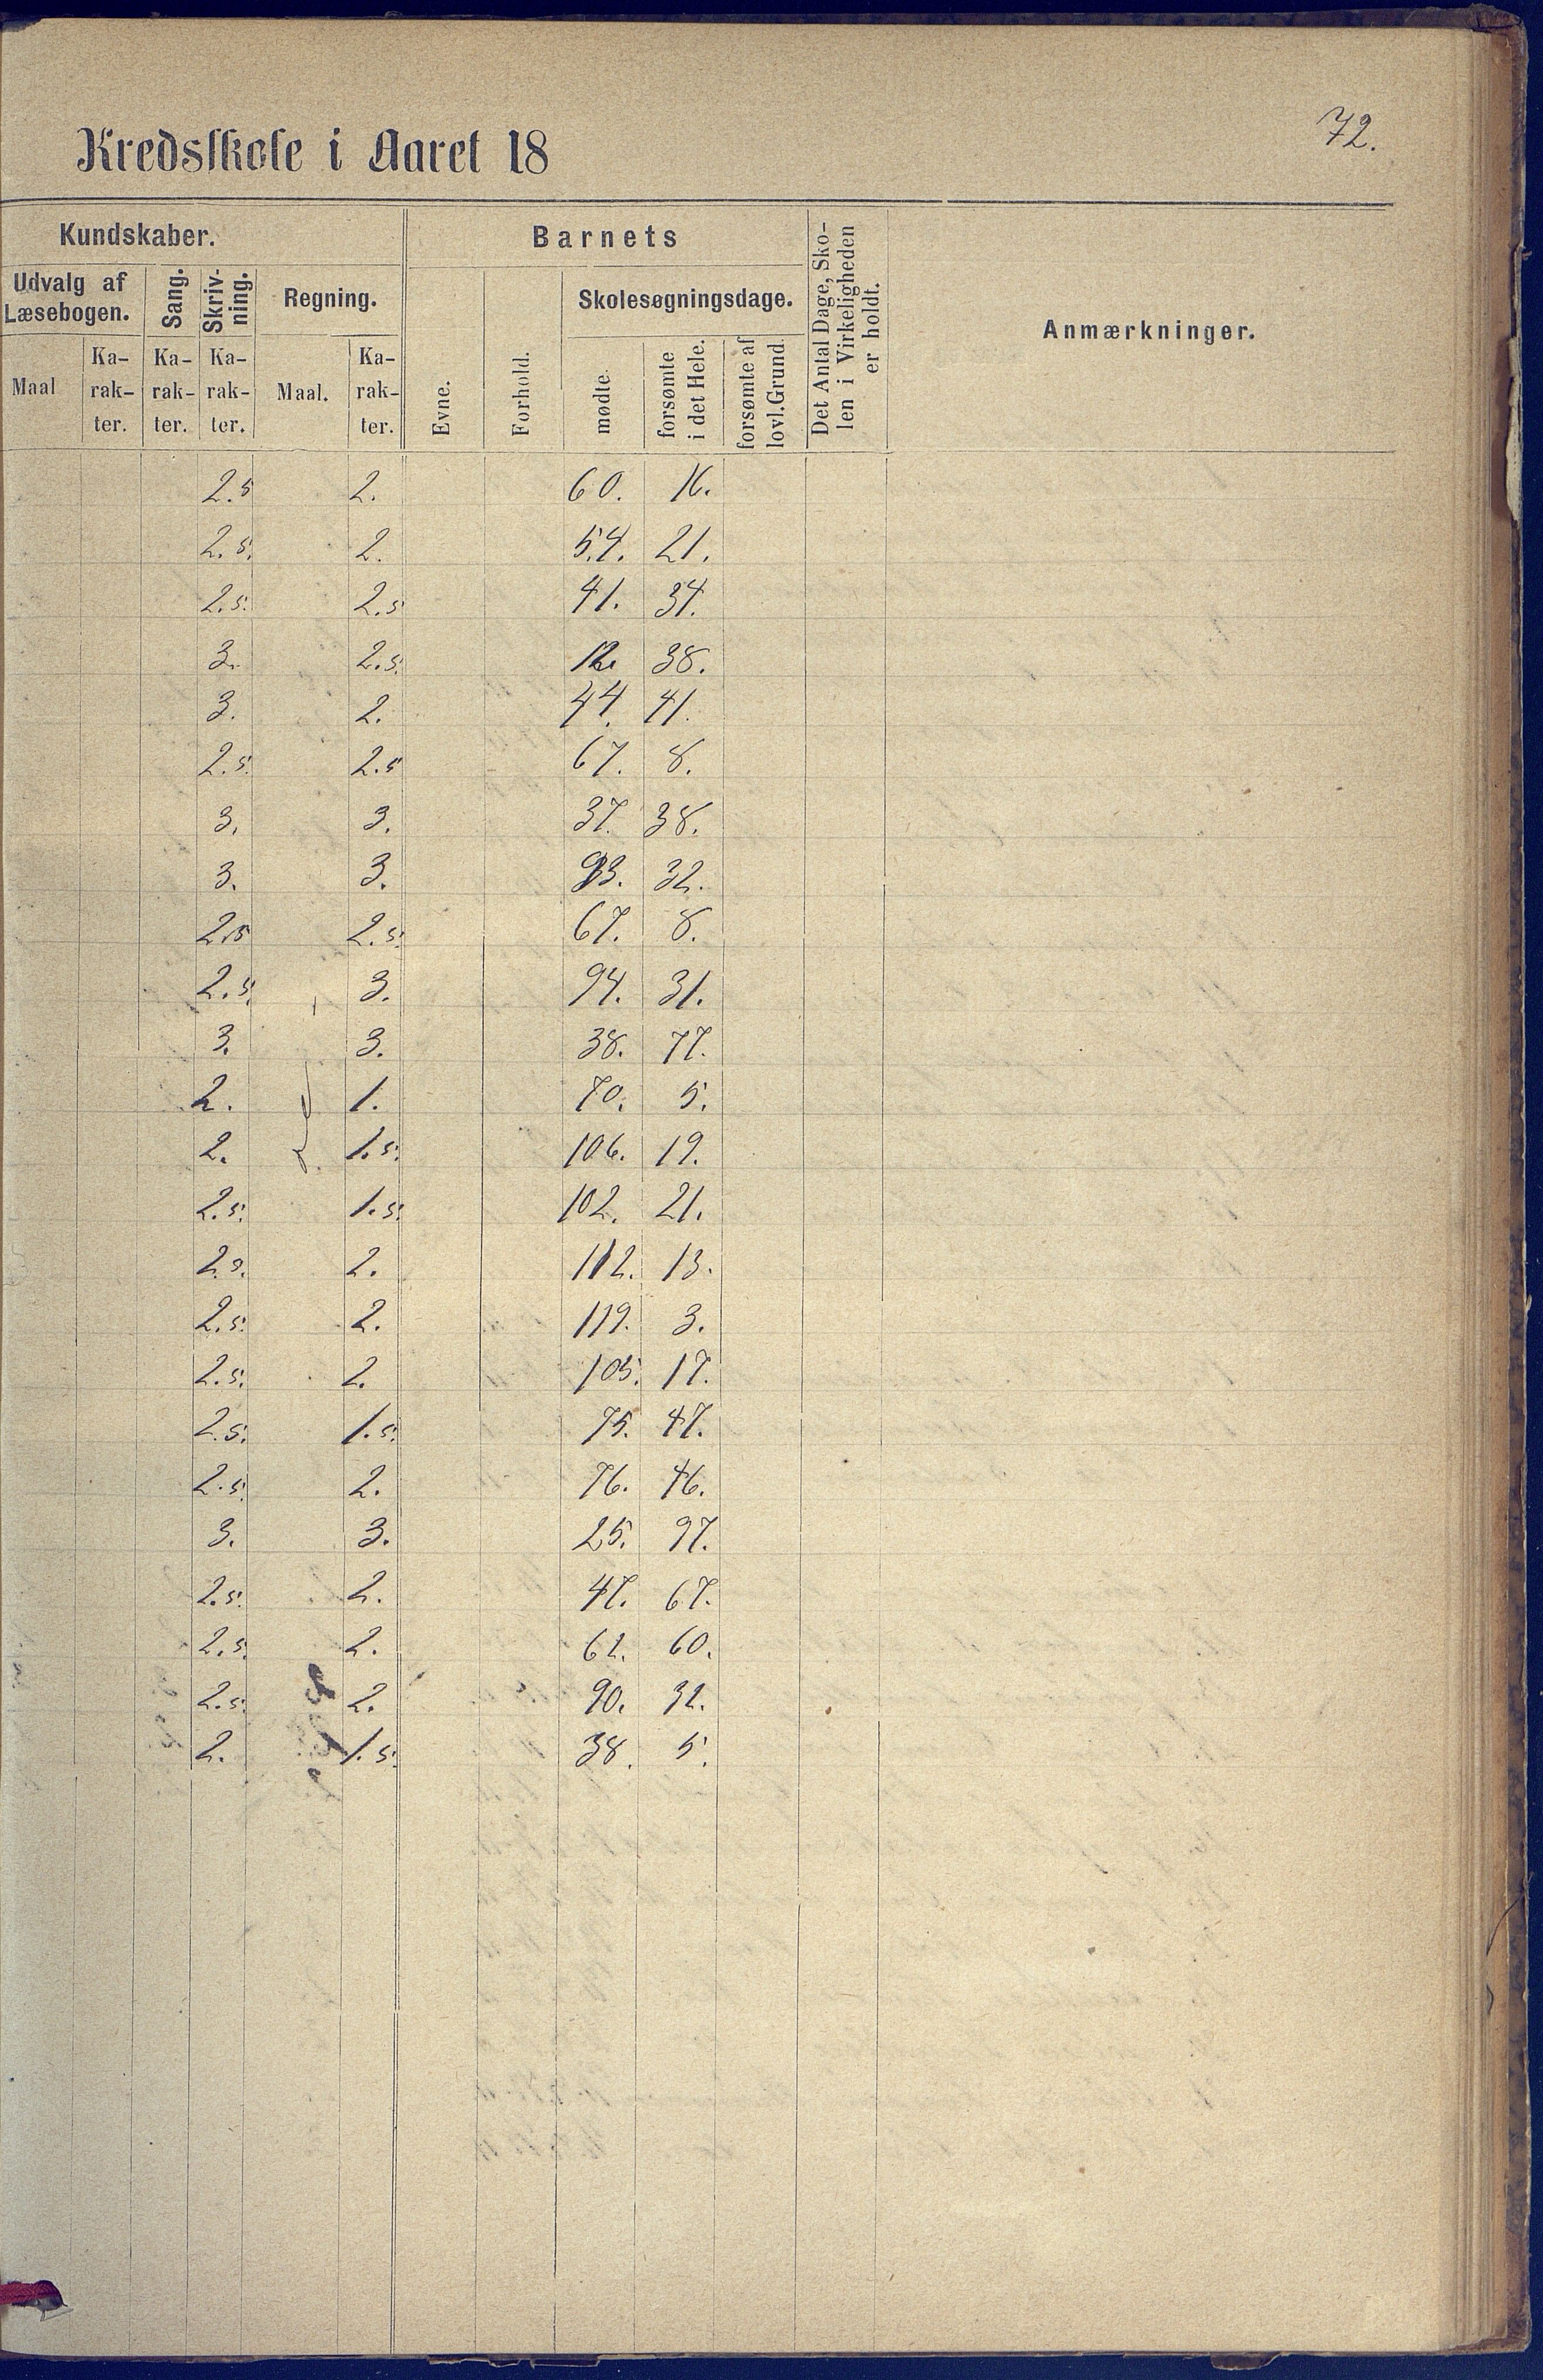 72.
Kredsskole i Aaret 18
Kundskaber. Barnets Det Antal Dage, Sko-
len i Virkeligheden
er holdt. Anmærkninger.
Udvalg af
Læsebogen. Sang. Skriv-
ning. Regning. Evne. Forhold. Skolesøgningsdage.
Maal Ka-
rak-
ter. Ka-
rak-
ter. Ka-
rak-
ter. Maal. Ka-
rak-
ter. mødte. forsømte
i det Hele. forsømte af
lovl. Grund.
2.5 2. 60. 16.
2.5. 2. 54. 21.
2.5. 2.5 41. 34.
3. 2.5. 12. 38.
3. 2. 44. 41.
2.5. 2.5 67. 8.
3. 3. 37. 38.
3. 3. 93. 32.
2.5 2.5. 67. 8.
2.5. 3. 94. 31.
3. 3. 38. 77.
2. 1. 70. 5.
2. 1.5. 106. 19.
2.5. 1.5. 102. 21.
2. 112. 13.
2.5. 2. 119. 3.
2.5. 2. 105. 17.
2.5. 1.5. 75. 47.
2.5. 2. 76. 46.
3. 3. 25. 97.
2.5. 2. 47. 67.
2.5. 2. 62. 60.
2.5. 2. 90. 32.
2. 1.5. 38. 5.